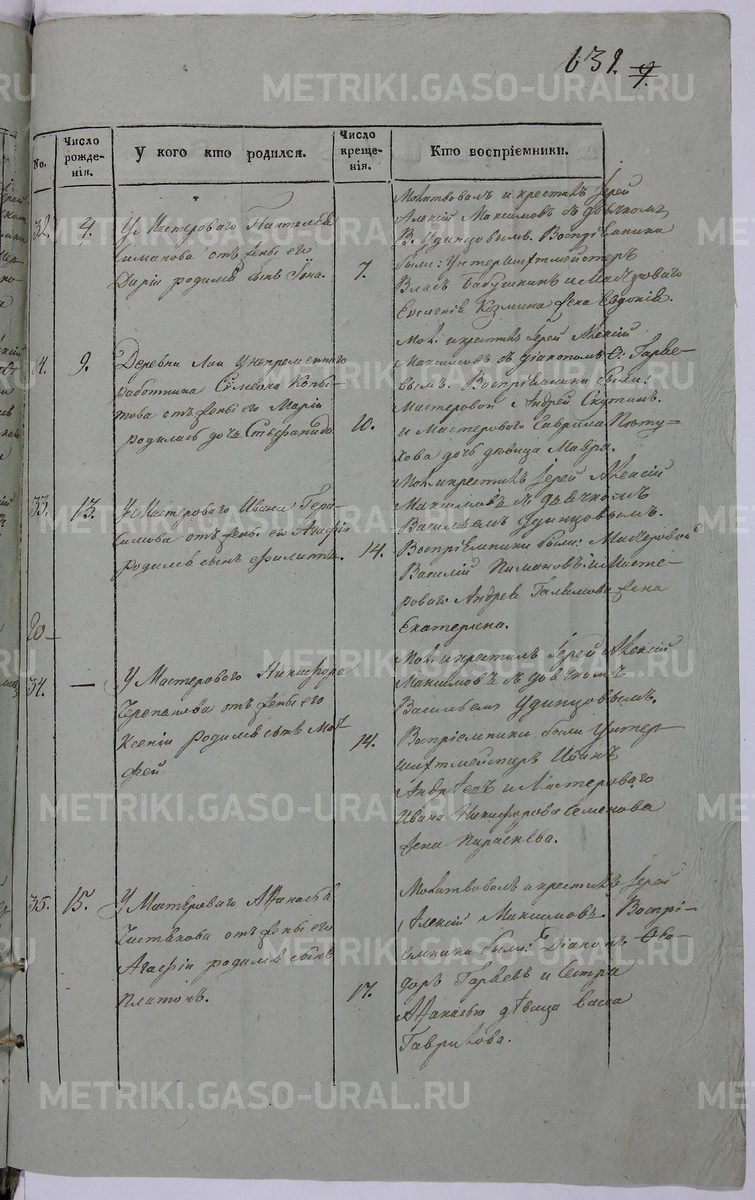 639. 9.
No.
Число рожде- нія.
У кого кто родился.
Число креще- нія.
Кто воспріемники.
32. 4.
У Мастероваго Пантелея
Симанова отъ жены его
Дарии родился сынъ Іона.
7.
Молитвовалъ и крестилъ Іерей
Алексій Максимовъ съ дьячкомъ
В. Удинцовымъ. Воспріемники
были: Унтершихтмейстеръ
Власъ Бабушкинъ и Мастероваго
Козмина жена Евдокія.
11. 9.
Деревни Лаи у непременнаго
работника Сүмеона Копы-
това отъ жены его Маріи
родилась дочь Стефанида.
10.
Мол. и крестилъ Іерей Алексій
Максимовъ съ діакономъ Ѳ. Гаряе-
вымъ. Воспріемники были:
Мастеровой Андрей Скутинъ
и Мастероваго Гаврила Пѣту-
хова дочь дѣвица Мавра.
33. 13.
У Мастероваго Ивана Гера-
симова отъ жены его Агафіи
родился сынъ Филитъ.
14.
Мол. и крестилъ Іерей Алексій
Максимовъ съ дьячкомъ
Васильемъ Удинцовымъ.
Воспріемники были: Мастеровой
Василій и Масте-
роваго Андрея Галимова жена
Екатерина.
20
34. —
У Мастероваго Никифора
Черепанова отъ жены его
Ксеніи родился сынъ Мат
фей.
14.
Мол. и крестилъ Іерей Алексій
Максимовъ съ дьячкомъ
Васильемъ Удинцовымъ.
Воспріемники были Унтер
шихтмейстеръ Иванъ
Андреевъ и Мастероваго
Ивана Никифорова Семенова
жена Параскева.
35. 15.
У Мастероваго Афанасья
Чистякова отъ жены его
Агафіи родился сынъ
Платонъ.
17.
Молитвовалъ и крестилъ Іерей
Алексій Максимовъ. Воспрі-
емники были: Діаконъ Ѳео-
доръ Гаряевъ и сестра
Афанасью дѣвица Васса
Гаврилова.
METRIKI.GASO-URAL.RU